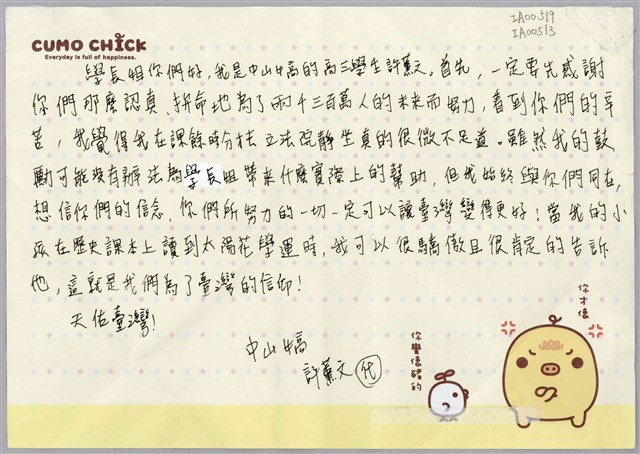 IA00519
IA00513
CUMO CHICK
Everyday is full of happiness.
學長姐你們好，我是中山女高的高三學生許薰文。首先，一定要先感謝
你們那麼認真、拼命地為了兩千三百萬人的未來而努力，看到你們的辛
苦，我覺得我在課餘時分在立法院靜坐真的很微不足道。雖然我的鼓
勵可能沒有辦法為學長姐帶來什麼實際上的幫助，但我始終與你們同在，
想信你們的信念，你們所努力的一切一定可以讓臺灣變得更好！當我的小
孩在歷史課本上讀到太陽花學運時，我可以很驕傲且很肯定的告訴
他，這就是我們為了臺灣的信仰！
天佑臺灣！
中山女高
許薰文 代
你才像
你蠻像豬的